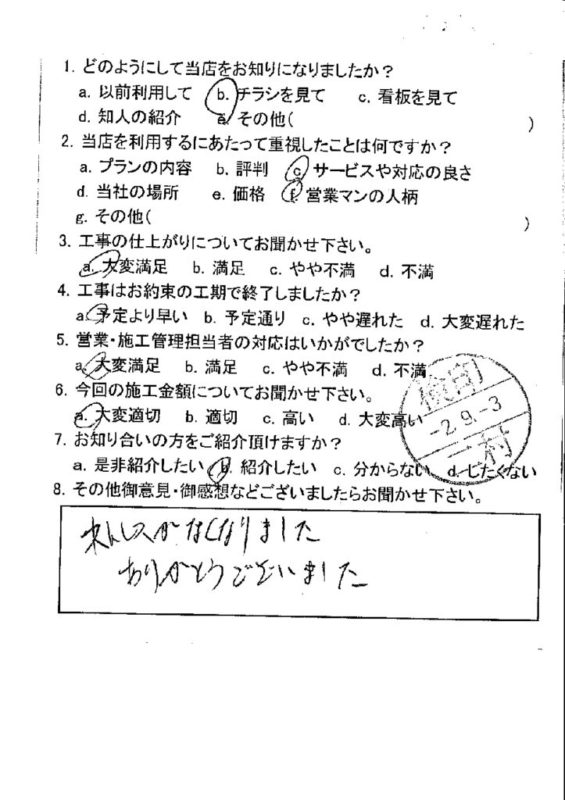 1. どのようにして当店をお知りになりましたか?
a. 以前利用して b. チラシを見て c. 看板を見て
d. 知人の紹介 e. その他( )
2. 当店を利用するにあたって重視したことは何ですか?
a. プランの内容 b. 評判 c. サービスや対応の良さ
d. 当社の場所 e. 価格 f. 営業マンの人柄
g. その他( )
3. 工事の仕上がりについてお聞かせ下さい。
a. 大変満足 b. 満足 c. やや不満 d. 不満
4. 工事はお約束の工期で終了しましたか?
a. 予定より早い b. 予定通り c. やや遅れた d. 大変遅れた
5. 営業・施工管理担当者の対応はいかがでしたか?
a. 大変満足 b. 満足 c. やや不満 d. 不満
6. 今回の施工金額についてお聞かせ下さい。
a. 大変適切 b. 適切 c. 高い d. 大変高い
-2.9.-3
7. お知り合いの方をご紹介頂けますか?
a. 是非紹介したい b. 紹介したい c. 分からない d. したくない
8. その他御意見・御感想などございましたらお聞かせ下さい。
ストレスがなくなりました
ありがとうございました